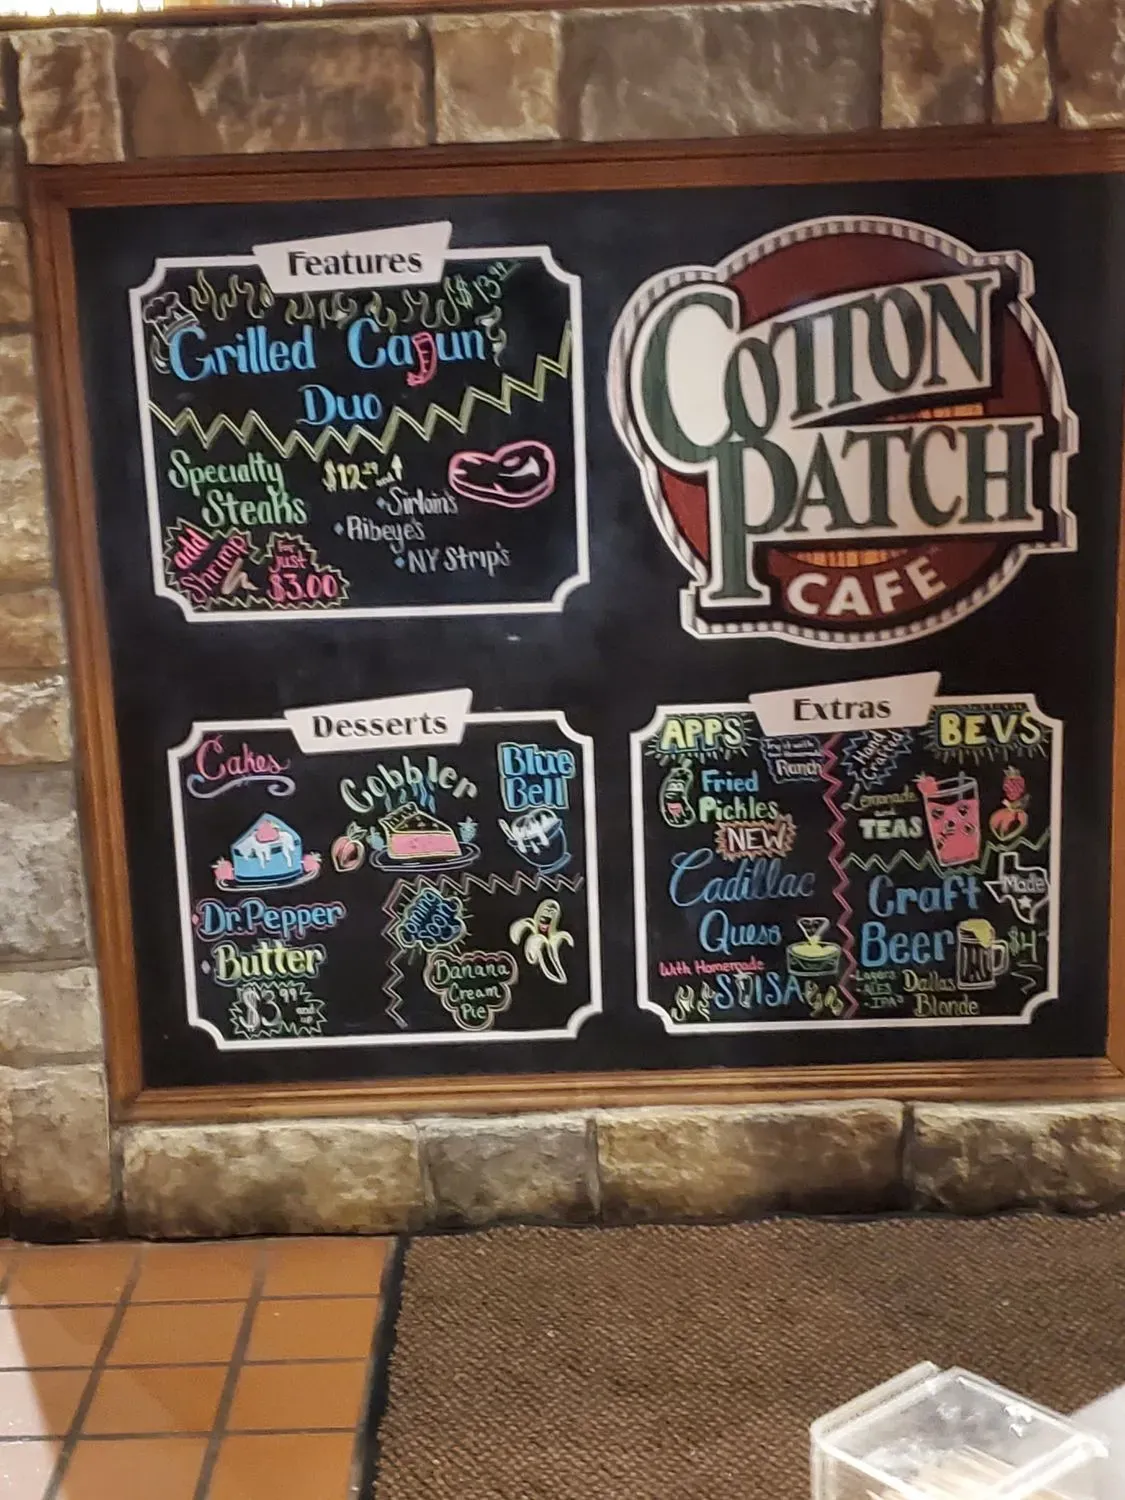 Features
Grilled Cajun
Duo
Specialty
Steaks
and
• Sirloin's
• Ribeye's
• NY Strip's
add
Shrimp
for
just
$3.00
COTTON
PATCH
CAFE
Desserts
Cakes
Cobbler
Blue
Bell
• Dr. Pepper
• Butter
$3.99
and
up
Coming
Soon
Banana
Cream
Pie
Extras
APPS
Ranch
Fried
Pickles
NEW
Cadillac
Queso
With Homemade
SALSA
BEVS
Hand
Crafted
Lemonade
and
TEAS
Craft
Beer
Made
$4
Lagers
ALES
IPA's
Dallas
Blonde